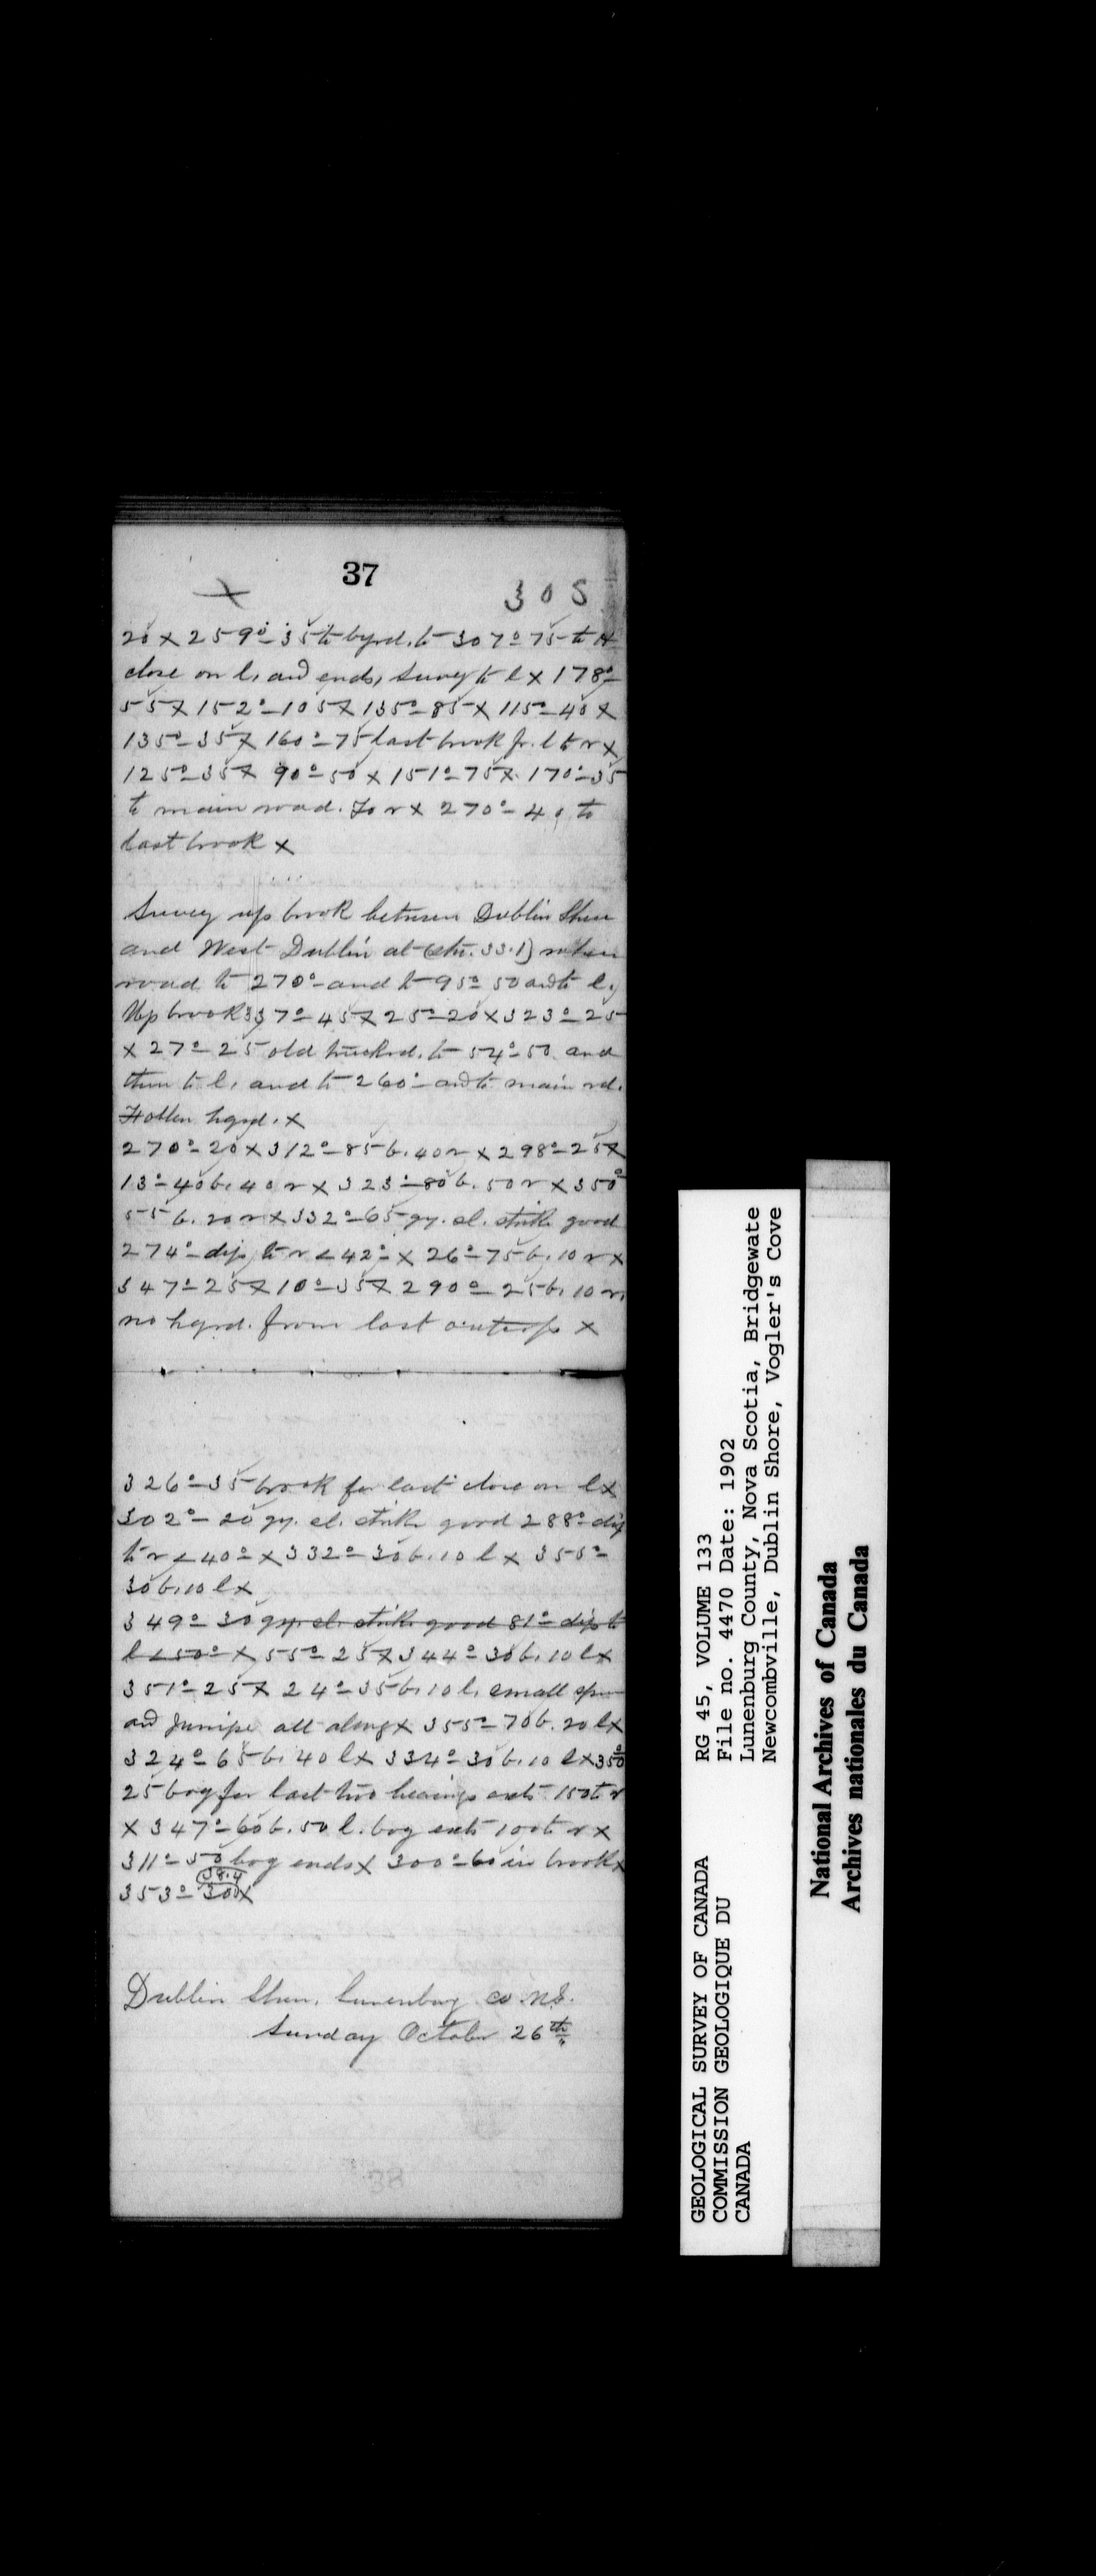 37
X 305
20 x 259°-35 to byrd. to 307°-75 to H
close on l. and ends, survey to l x 178°-
55 x 152°-105 x 135°-85 x 115°-40 x
135°-35 x 160°-75 last brook fr. l to r x
125°-35 x 90°-50 x 151°-75 x 170°-35
to main road. To r x 270°-40 to
last brook x
Survey up brook between Dublin Shore
and West Dublin at (stn. 33.1) where
road to 270°- and to 95°-50 and to l.
Up brook 337°-45 x 25°-20 x 323°-25
x 27°-25 old truckrd. to 54°-50 and
then to l. and to 260°- and to main rd.
hgrd. x
270°-20 x 312°-85 b. 40 r x 298°-25 x
13°-40 b. 40 r x 323°-80 b. 50 r x 350°
55 b. 20 r x 332°-65 gy. sl. strike good
274°- dip to r < 42°- x 26°-75 b. 10 r x
347°-25 x 10°-35 x 290°-25 b. 10 r.
no hgrd. from last outcrop x
326°-35 brook for last close on l x
302°-20 gy. sl. strike good 288°- dip
to r < 40°- x 332°-30 b. 10 l x 355°-
30 b. 10 l x
349°-30 gy. sl. strike good 81°- dip to
l < 50°- x 55°-25 x 344°-30 b. 10 l x
351°-25 x 24°-35 b. 10 l. small
and Juniper all along x 355°-70 b. 20 l x
324°-65 b. 40 l x 334°-30 b. 10 l x 350°
25 bog for last two bearings exts 150 to r
x 347°-60 b. 50 l. bog exts 100 to r x
311°-50 bog ends x 300°-60 in brook x
353°-300 x
38.4
Dublin Shore, Lunenburg co. N.S.
Sunday October 26th
GEOLOGICAL SURVEY OF CANADA
COMMISSION GEOLOGIQUE DU
CANADA
RG 45, VOLUME 133
File no. 4470 Date: 1902
Lunenburg County, Nova Scotia, Bridgewate
Newcombville, Dublin Shore, Vogler's Cove
National Archives of Canada
Archives nationales du Canada